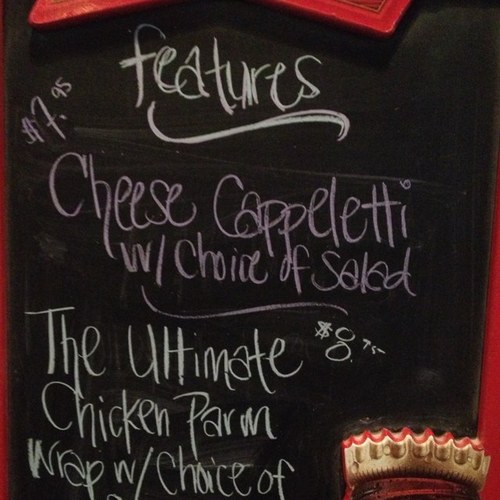 Features
$7.95
Cheese Cappeletti
w/ Choice of Salad
The Ultimate
$8.75
Chicken Parm
Wrap w/ Choice of